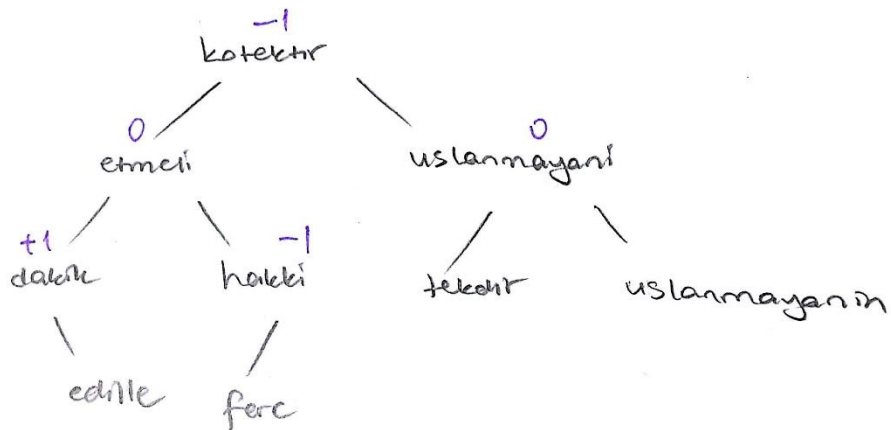 -1
kotektir
0 0
etmeli uslanmayani
+1 -1
dakik hakki tekdir uslanmayanin
edille ferc